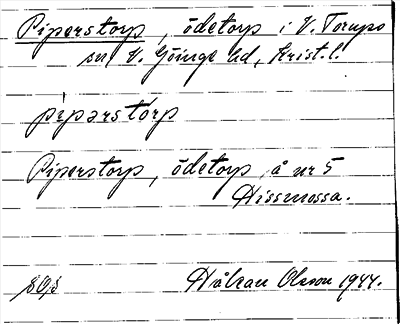 Piperstorp, ödetorp i V. Torups
sn V. Göinge hd, Krist. l.
pipərstórp
Piperstorp, ödetorp å nr 5
Hissmossa.
Håkan Olsson 1944.